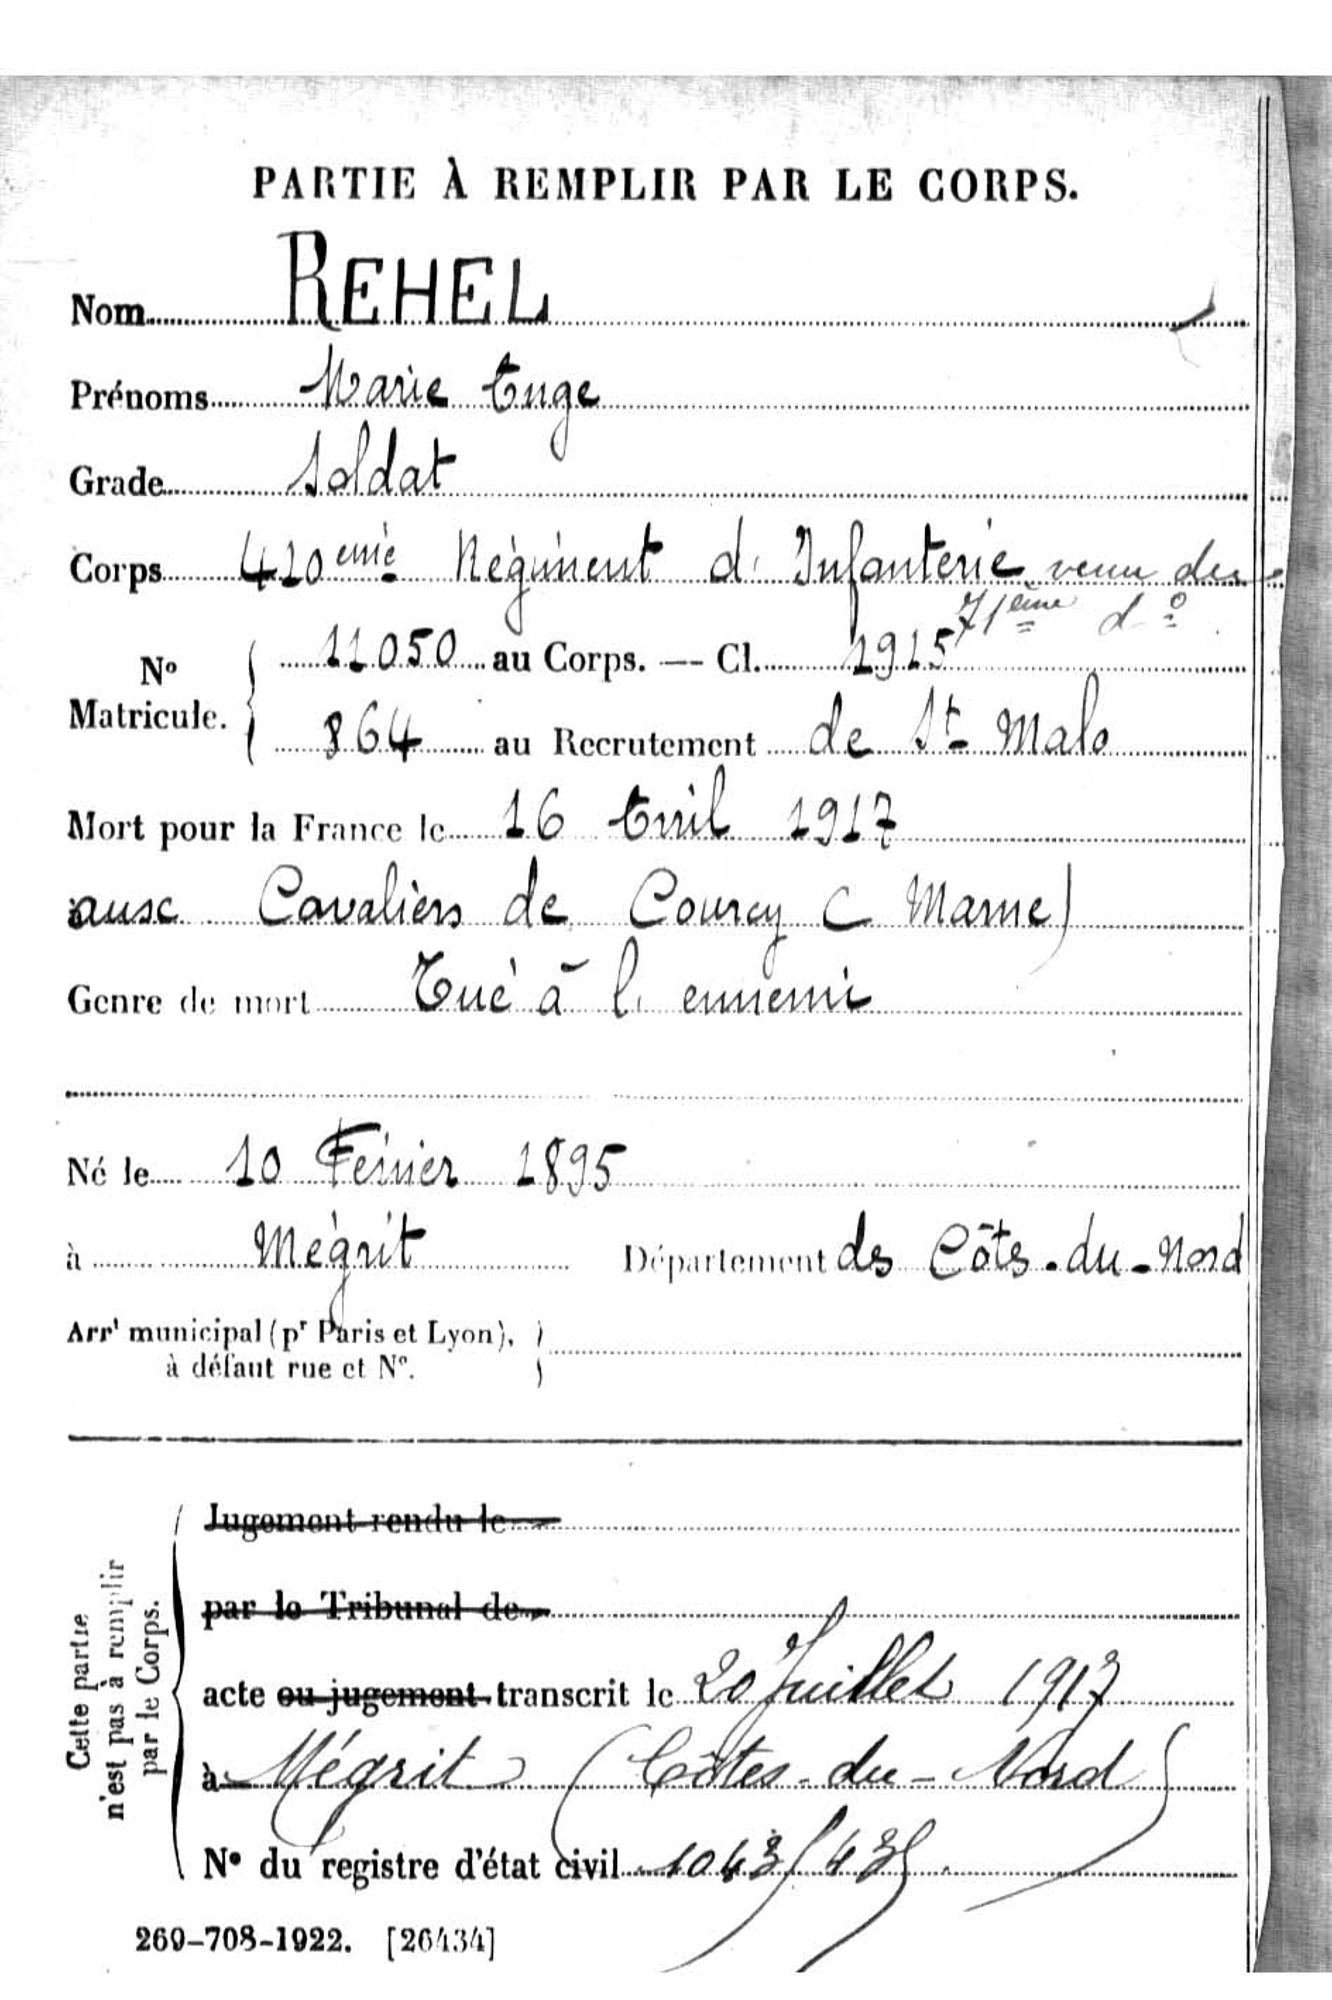 PARTIE À REMPLIR PAR LE CORPS.
Nom REHEL
Prénoms Marie Ange
Grade Soldat
Corps 410eme Régiment d'Infanterie venu du
71ème do
No Matricule. 11050 au Corps. — Cl. 1915
864 au Recrutement de St Malo
Mort pour la France le 16 Avril 1917
aux Cavaliers de Courcy (Marne)
Genre de mort Tué à l'ennemi
Né le 10 Février 1895
à Mégrit Département des Côtes-du-Nord
Arrt municipal (pr Paris et Lyon),
à défaut rue et No.
Cette partie
n'est pas à remplir
par le Corps.
Jugement rendu le
par le Tribunal de
acte ou jugement transcrit le 20 Juillet 1917
à Mégrit (Côtes-du-Nord)
No du registre d'état civil 1043/43
269-708-1922. [26434]